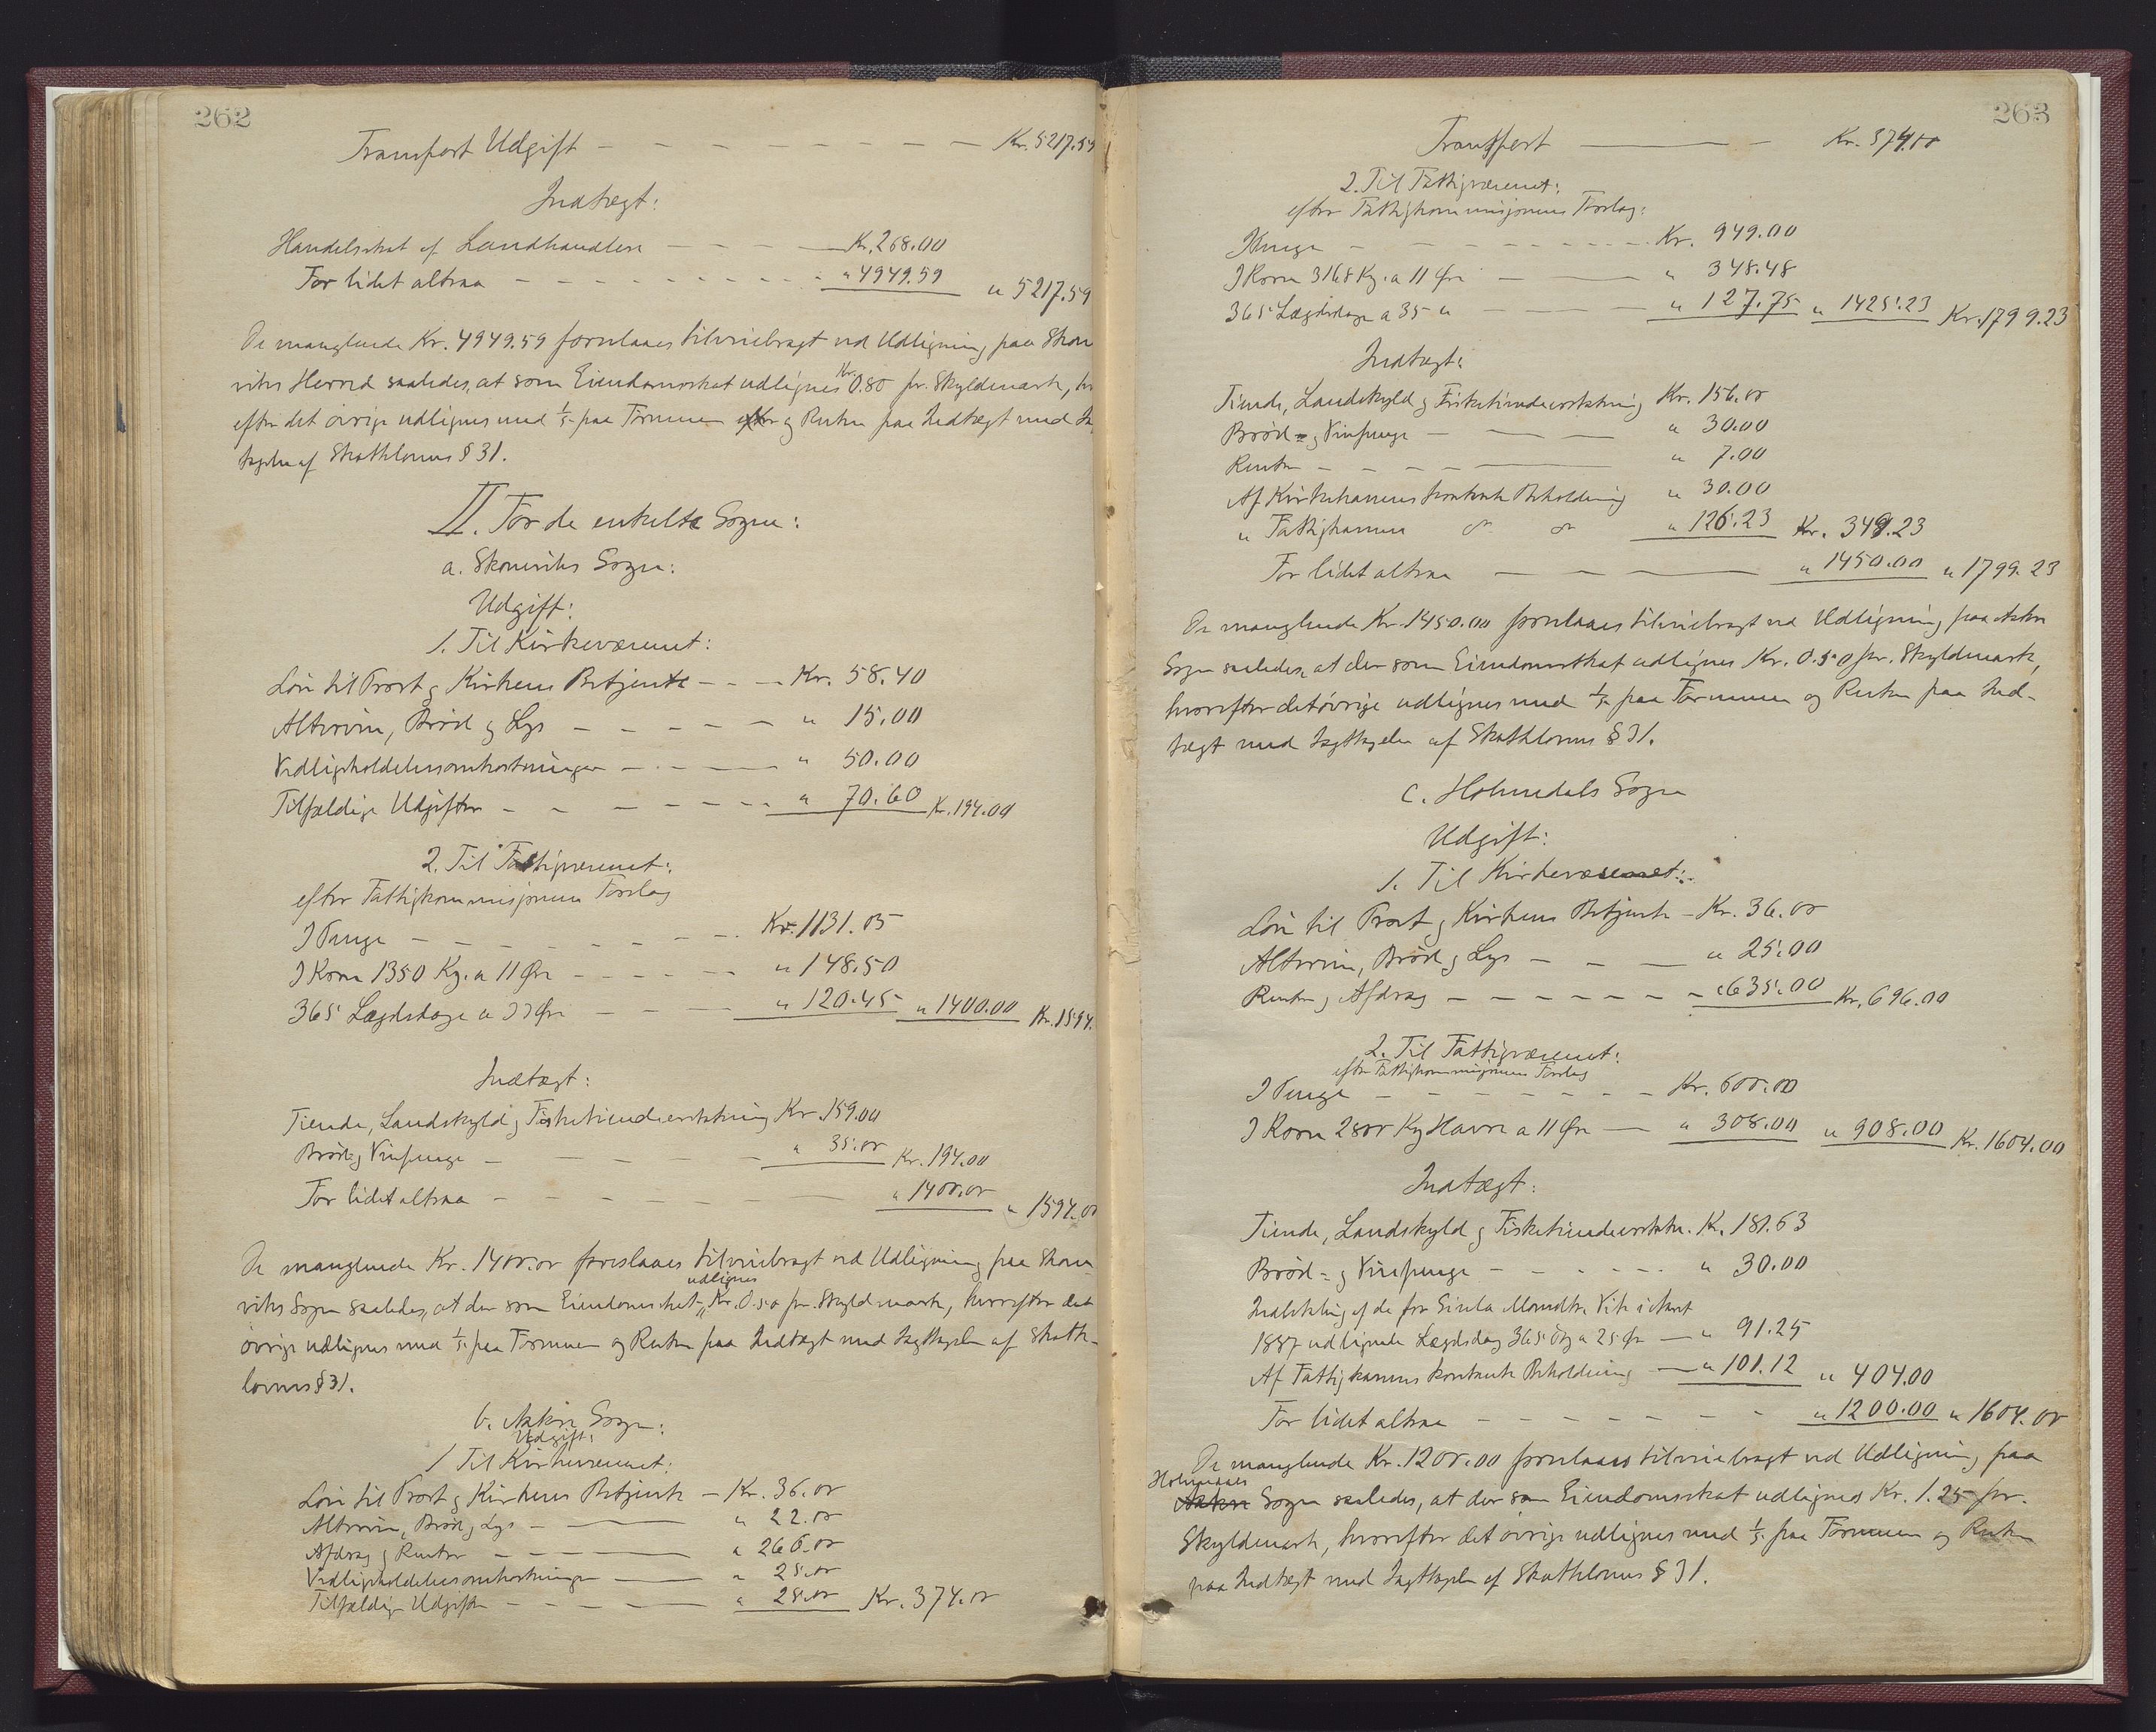 262
Transport Udgift - - - - - - - - - Kr. 5217.59
Indtægt:
Handelsskat af Landhandlere - - - - Kr. 268.00
For lidet altsaa - - - - - - - - " 4949.59 " 5217.59
De manglende Kr. 4949.59 foreslaaes tilveiebragt ved Udligning paa Skone
viks Herred saaledes, at som Eiendomsskat udlignes Kr. 0.80 pr. Skyldmark, hvor
efter det øvrige udlignes med 1/5 paa Formuen og Resten paa Indtægt med Iagt
tagelse af Skattelovens § 31.
II. For de enkelte Sogne:
a. Skoneviks Sogn:
Udgift:
1. Til Kirkevæsenet:
Løn til Prost og Kirkens Betjente - - - Kr. 58.40
Altervin, Brød og Lys - - - - " 15.00
Vedligeholdelsesomkostninger - - - " 50.00
Tilfældige Udgifter - - - - - - " 70.60 Kr. 194.00
2. Til Fattigvæsenet:
efter Fattigkommisjonens Forslag
I Penge - - - - - - - - Kr. 1131.05
I Korn 1350 Kg. a 11 Øre - - - - - " 148.50
365 Lægdsdage a 33 Øre - - - - " 120.45 " 1400.00 Kr. 1594.
Indtægt:
Tiende, Landskyld og Fisketiendeerstatning Kr. 159.00
Brød og Vinpenge - - - - - - " 35.00 Kr. 194.00
For lidet altsaa - - - - - - - " 1400.00 " 1594.00
De manglende Kr. 1400.00 foreslaaes tilveiebragt ved Udligning paa Skone
viks Sogn saaledes, at der som Eiendomsskat udlignes Kr. 0.50 pr. Skyldmark, hvorefter det
øvrige udlignes med 1/5 paa Formuen og Resten paa Indtægt med Iagttagelse af Skatte-
lovens § 31.
b. Aakre Sogn:
Udgift:
1 Til Kirkevæsenet:
Løn til Prost og Kirkens Betjente - Kr. 36.00
Altervin, Brød og Lys - - " 22.00
Afdrag og Renter - - - " 266.00
Vedligeholdelsesomkostninger - " 25.00
Tilfældige Udgifter - - - - " 25.00 Kr. 374.00
263
Transport - - Kr. 374.00
2. Til Fattigvæsenet:
efter Fattigkommisjonens Forslag:
I Penge - - - - - - - - Kr. 949.00
I Korn 3168 Kg. a 11 Øre - - " 348.48
365 Lægdsdage a 35 " - - - - " 127.75 " 1425.23 Kr. 1799.23
Indtægt:
Tiende, Landskyld og Fisketiendeerstatning Kr. 156.00
Brød = og Vinpenge - - - " 30.00
Renter - - - - - " 7.00
Af Kirkekassens kontante Beholdning " 30.00
" Fattigkassens do do " 126.23 Kr. 349.23
For lidet altsaa - - - " 1450.00 " 1799.23
De manglende Kr. 1450.00 foreslaaes tilveiebragt ved Udligning paa Aakre
Sogn saaledes, at der som Eiendomsskat udlignes Kr. 0.50 pr. Skyldmark,
hvorefter det øvrige udlignes med 1/5 paa Formuen og Resten paa Ind-
tægt med Iagttagelse af Skattelovens § 31.
c. Holmedals Sogn
Udgift:
1. Til Kirkevæsenet:
Løn til Prost og Kirkens Betjente - Kr. 36.00
Altervin, Brød og Lys - - - " 25.00
Renter og Afdrag - - - - - - - " 635.00 Kr. 696.00
2. Til Fattigvæsenet:
efter Fattigkommisjonens Forslag
I Penge - - - - - - - - Kr. 600.00
I Korn 2800 Kg Havre a 11 Øre - " 308.00 " 908.00 Kr. 1604.00
Indtægt:
Tiende, Landskyld og Fisketiendeerstatn. Kr. 181.63
Brød = og Vinpenge - - - - - - " 30.00
Indbetaling af de for Vik i Aaret
1887 udlignede Lægdsdag 365 Dg a 25 Øre - " 91.25
Af Fattigkassens kontante Beholdning - " 101.12 " 404.00
For lidet altsaa - - - - - - - - " 1200.00 " 1604.00
De manglende Kr. 1200.00 foreslaaes tilveiebragt ved Udligning paa
Holmedals Sogn saaledes, at der som Eiendomsskat udlignes Kr. 1.25 pr.
Skyldmark, hvorefter det øvrige udlignes med 1/5 paa Formuen og Resten
paa Indtægt med Iagttagelse af Skattelovens § 31.